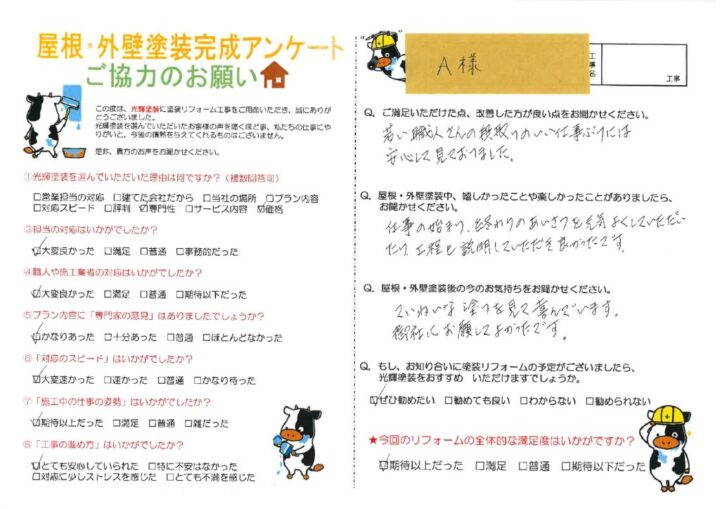 屋根・外壁塗装完成アンケート
ご協力のお願い
この度は、光輝塗装に塗装リフォーム工事をご用命いただき、誠にありがとうございました。
光輝塗装を選んでいただいたお客様の声を聴くほど事、私たちの仕事にやりがいと、今後の情熱を与えてくれるものはございません。
是非、貴方のお声をお聞かせください。
①光輝塗装を選んでいただいた理由は何ですか?(複数回答可)
□営業担当の対応 □建てた会社だから □当社の場所 □プラン内容
□対応スピード □評判 ☑専門性 □サービス内容 ☑価格
③担当の対応はいかがでしたか?
☑大変良かった □満足 □普通 □事務的だった
④職人や施工業者の対応はいかがでしたか?
☑大変良かった □満足 □普通 □期待以下だった
⑤プラン内容に「専門家の意見」はありましたでしょうか?
☑かなりあった □十分あった □普通 □ほとんどなかった
⑥「対応のスピード」はいかがでしたか?
☑大変速かった □速かった □普通 □かなり待った
⑦「施工中の仕事の姿勢」はいかがでしたか?
☑期待以上だった □満足 □普通 □雑だった
⑧「工事の進め方」はいかがでしたか?
☑とても安心していられた □特に不安はなかった
□対応に少しストレスを感じた □とても不満を感じた
A様
工事名
工事
Q. ご満足いただけた点、改善した方が良い点をお聞かせください。
若い職人さんの段取りのいい仕事ぶりには
安心して見ておりました。
Q. 屋根・外壁塗装中、嬉しかったことや楽しかったことがありましたら、
お聞かせください。
仕事の始まり、終わりのあいさつを元気よくしていただい
たり工程も説明していただき良かったです。
Q. 屋根・外壁塗装後の今のお気持ちをお聞かせください。
ていねいな塗りを見て喜んでいます。
御社にお願してよかったです。
Q. もし、お知り合いに塗装リフォームの予定がございましたら、
光輝塗装をおすすめ いただけますでしょうか。
☑ぜひ勧めたい □勧めても良い □わからない □勧められない
★今回のリフォームの全体的な満足度はいかがですか?
☑期待以上だった □満足 □普通 □期待以下だった